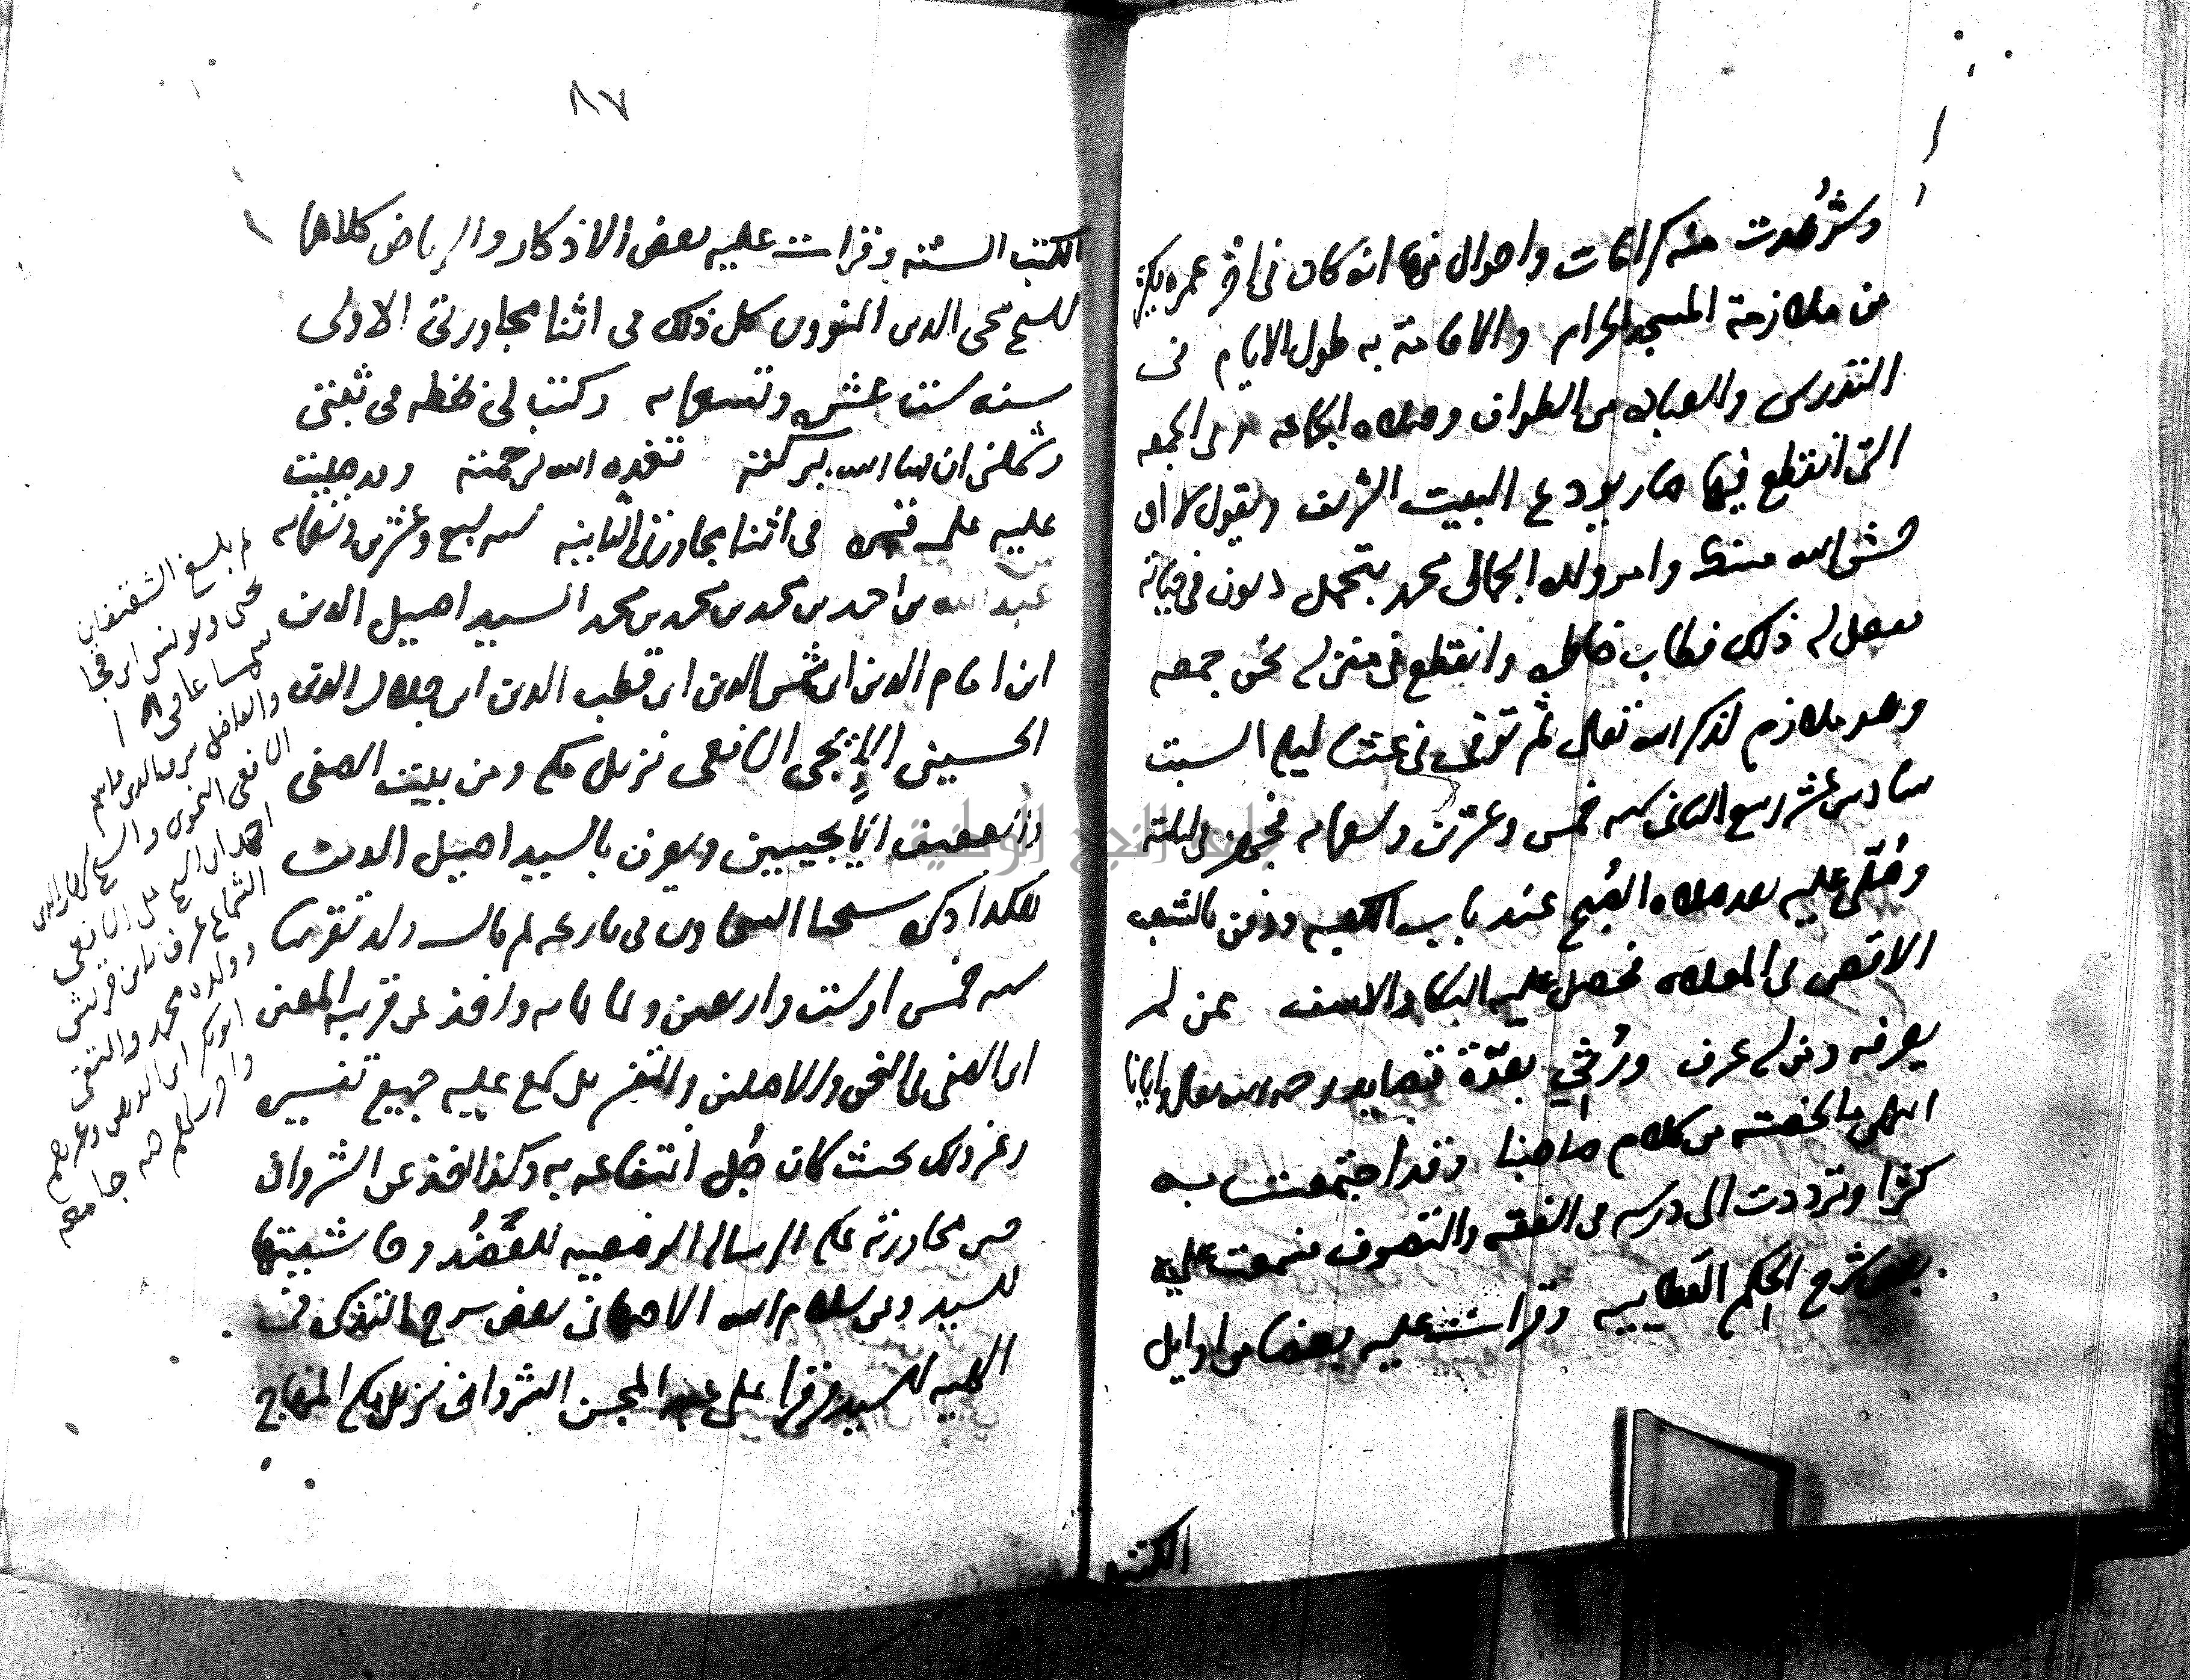 وشُوهدت منه كرامات واحوال منها انه كان في اخر عمره يكثر
من ملازمة المسجد الحرام والاقامة به طول الايام في
التدريس والعباده من الطواف وصلاه الجماعه وفي الجمعه
التي انقطع فيها صار يودع البيت الشريف ويقول لا او
حش الله منك وامر ولده الجمالي محمد بتحمل ديون في حياته
ففعل له ذلك فطاب خاطره وانقطع في منزله نحو جمعه
وهو ملازم لذكر الله تعالى ثم توفي في عشا ليله السبت
سادس عشر ربيع الثاني سنه خمس وعشرين وتسعمايه فجهز في ليلته
وصُلّي عليه بعد صلاه الصُبح عند باب الكعبه ودفن بالشعب
الاقصى من المعلاه فحصل عليه البكا والاسف ممن لم
يعرفه ومن له عرف ورُثِي بعدّة قصايد رحمه الله تعالى وايانا
انتهى ما لخصته من كلام صاحبنا وقد اجتمعت به
كثيرا وترددت الى درسه في الفقه والتصوف فسمعت عليه
بعض شرح الحِكم العَطاييه وقرات عليه بعضا من اوايل
الكتب
٨٧
الكتب السته وقرات عليه بعض الاذكار والرياض كلاهما
للشيخ محي الدين النووي كل ذلك في اثنا مجاورتي الاولى
سنه ست عشره وتسعمايه وكتب لي بخطه في ثبتي
وشملني ان شا الله بركته تغمده الله برحمته وقد
عليه على قبره في اثنا مجاورتي الثانيه سنه سبع وعشرين وتسعمايه
عبدالله بن احمد بن محمد بن محمد بن محمد السيد اصيل الدين
ابن امام الدين ابن شمس الدين ابن قطب الدين ابن جلال الدين
الحسيني الاِيْجي الشافعي نزيل مكه ومن بيت الصفي
والعفيف الايجيين ويعرف بالسيد اصيل الدين
هكذا ذكره شيخنا السخاوي في تاريخه ثم قال ولد تقريبا
سنه خمس او ست واربعين وثمانمايه واخذ عن قريبه المعين
ابن الصفي في النحو والاصلين والتفسير بل سمع عليه جميع تفسيره
وغير ذلك بحيث كان جُل انتفاعه به وكذا اخذ عن الشرواني
حين مجاورته بمكه الرساله الوضعيه للعَضُد وحاشيتها
للسيد وعن سلام الله الاصبهاني بعض شرح التذكره في
الهييه للسيد وقرا على عبد المحسن الشرواني نزيل مكه المنهاج
ثم بلغ الشقيقان
يحيى ويونس ابن
سمعا عافى
الشافعي النحوي والشيخ
احمد ابن الشيخ علي الشافعي
الشماع عرف بابن قريش
وولده محمد والتقي
ابو بكر ابن
جامعه